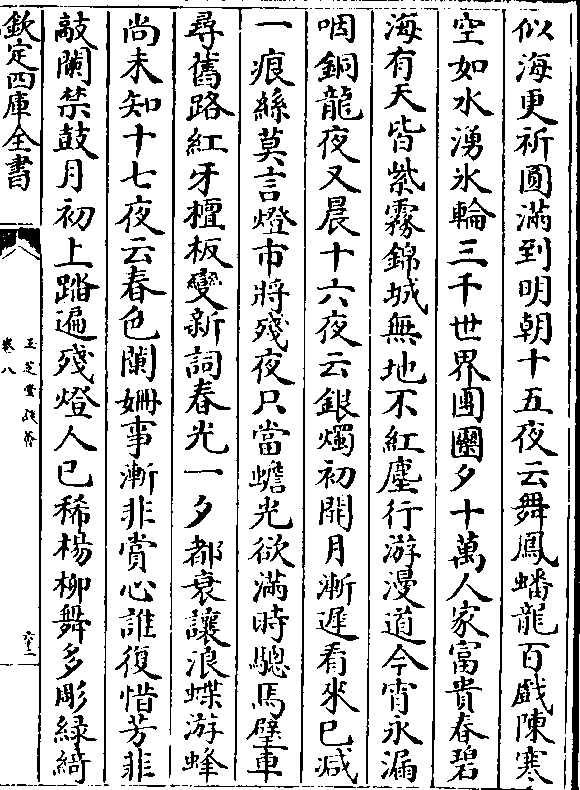 似海更祈圓滿到明朝十五夜云舞鳳蟠龍百戲陳寒
空如水湧氷輪三千世界團圞夕十萬人家富貴春碧
海有天皆紫霧錦城無地不紅塵行游漫道今宵永漏
咽銅龍夜又晨十六夜云銀燭初開月漸遲看來已減
一痕絲莫言燈市將殘夜只當蟾光欲滿時驄馬璧車
尋舊路紅牙檀板變新詞春光一夕都衰讓浪蝶游蜂
尚未知十七夜云春色闌姍事漸非賞心誰復惜芳菲
敲闌禁鼓月初上踏遍殘燈人已稀楊柳舞多彫綠綺
欽定四庫全書
玉芝堂談薈
卷八
六十二